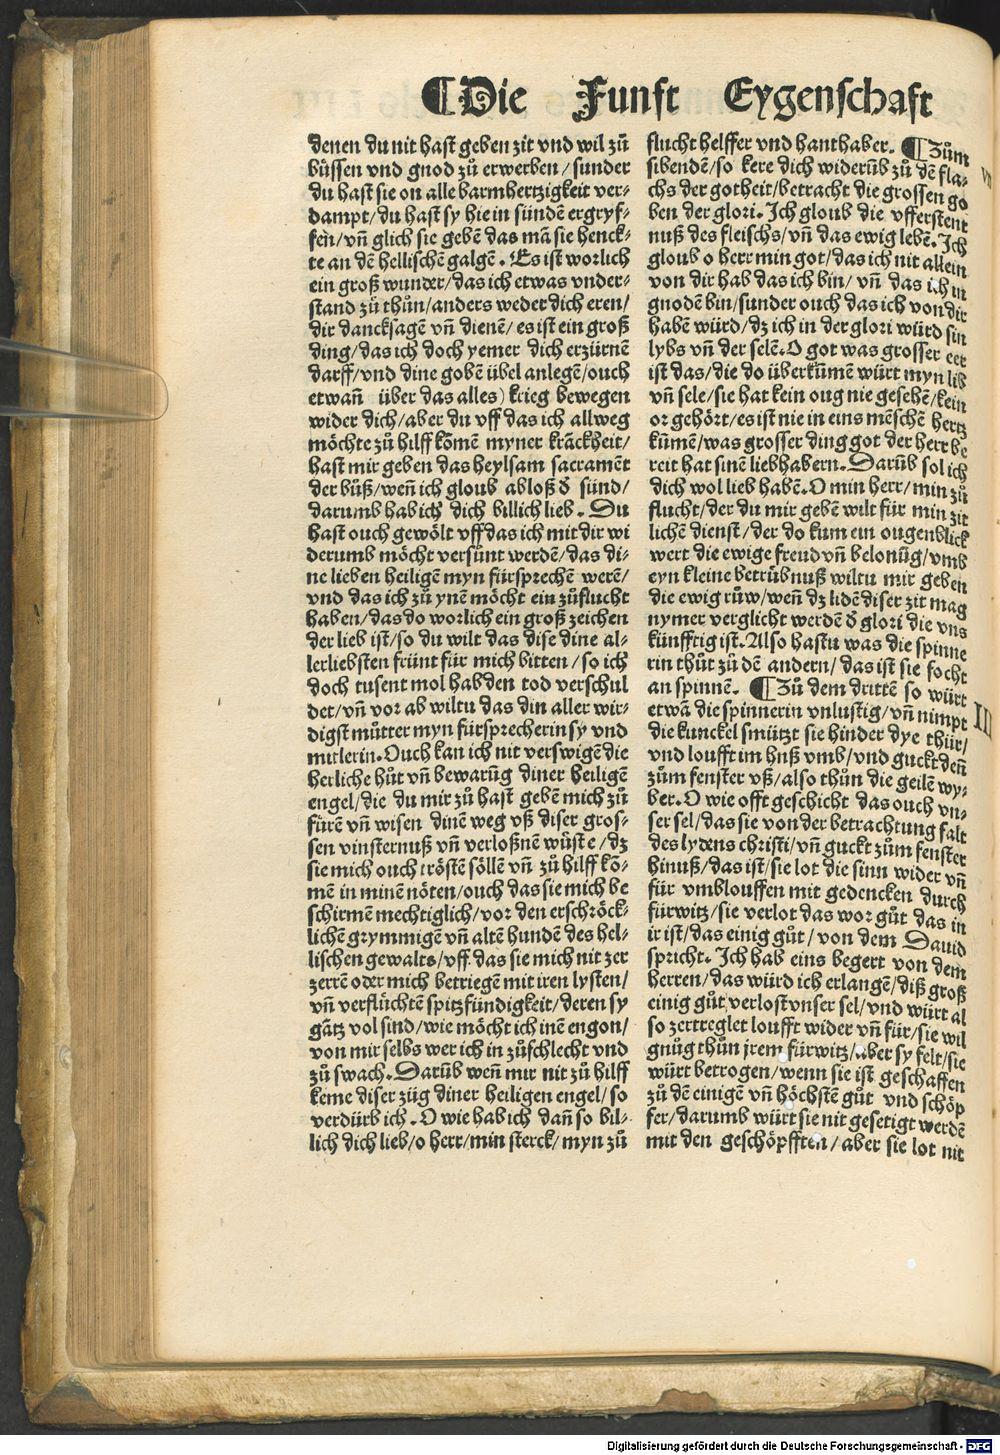 ¶Die Funfft Eygenschafft
denen du nit hast geben zit vnd wil zů
bůssen vnd gnod zů erwerben / sunder
du hast sie on alle barmhertzigkeit ver⸗
dampt/du hast sy hie in sündē ergryf⸗
fen/ vñ glich sie gebē das mā sie henck⸗
te an dē hellischē galgē . Es ist worlich
ein groß wunder/das ich etwas vnder⸗
stand zů thůn/anders weder dich eren/
dir dancksagē vñ dienē/ es ist ein groß
ding/das ich doch yemer dich erzürnē
darff/vnd dine gobē übel anlegē/ouch
etwañ über das alles) krieg bewegen
wider dich/aber du vff das ich allweg
möchte zů hilff kōmē myner krāckheit/
hast mir geben das heylsam sacramēt
der bůß/weñ ich gloub abloß ď sünd/
darumb hab ich dich billich lieb . Du
hast ouch gewölt vff das ich mit dir wi
derumb möcht versünt werdē/das di⸗
ne lieben heiligē myn fürsprechē werē/
vnd das ich zů ynē möcht ein zůflucht
haben/das do worlich ein groß zeichen
der lieb ist/so du wilt das dise dine al⸗
lerliebsten frünt für mich bitten /so ich
doch tusent mol hab den tod verschul
det/vñ vor ab wiltu das din aller wir⸗
digst můtter myn fürsprecherin sy vnd
mitlerin.Ouch kan ich nit verswigē die
herliche hůt vñ bewarūg diner heiligē
engel/die du mir zů hast gebē mich zů
fürē vñ wisen dinē weg vß diser gros⸗
sen vinsternuß vñ verloßnē wüste /dz
sie mich ouch tröstē söllē vñ zů hilff kō⸗
mē in minē nöten/ouch das sie mich be
schirmē mechtiglich/vor den erschröck⸗
lichē grymmigē vñ altē hundē des hel⸗
lischen gewalts/vff das sie mich nit zer
zerrē oder mich betriegē mit iren lysten/
vñ verflůchtē spitzfündigkeit/deren sy
gātz vol sind/wie möcht ich inē engon/
von mir selbs wer ich in zůschlecht vnd
zů swach.Darūb weñ mir nit zů hilff
keme diser züg diner heiligen engel/so
verdürb ich . O wie hab ich dañ so bil⸗
lich dich lieb/o herr/min sterck/myn zů
flucht helffer vnd hanthaber. ¶Zům
sibendē/so kere dich widerūb zů dē fla⸗
chs der gotheit/betracht die grossen go
ben der glori.Ich gloub die vfferstent
nuß des fleischs/vñ das ewig lebē.Ich
gloub o herr min got/das ich nit allein
von dir hab das ich bin/ vñ das ich in
gnodē bin/sunder ouch das ich von dir
habē würd/dz ich in der glori würd sin
lybs vñ der selē.O got was grosser eer
ist das/die do überkūmē würt myn lib
vñ sele/sie hat kein oug nie gesehē/kein
or gehört/es ist nie in eins mēschē hertz
kūmē/was grosser ding got der herr be
reit hat sinē liebhabern.Darūb sol ich
dich wol lieb habē.O min herr/min zů
flucht/der du mir gebē wilt für min zit
lichē dienst/der do kum ein ougenblick
wert die ewige freud vñ belonūg/vmb
eyn kleine betrübnuß wiltu mir geben
die ewig růw/weñ dz lidē diser zit mag
nymer verglicht werdē ď glori die vns
künfftig ist.Also hastu was die spinne
rin thůt zů dē andern/das ist sie focht
an spinnē. ¶Zů dem drittē so würt
etwā die spinnerin vnlustig/vñ nimpt
die kunckel smützt sie hinder dye thür/
vnd loufft im huß vmb/vnd guckt deñ
zům fenster vß/also thůn die geilē wy⸗
ber.O wie offt geschicht das ouch vn⸗
ser sel/das sie von der betrachtung falt
des lydens christi/vñ guckt zům fenster
hinuß/das ist/sie lot die sinn wider vñ
für vmblouffen mit gedencken durch
fürwitz/sie verlot das wor gůt das in
ir ist/das einig gůt/von dem Dauid
spricht.Ich hab eins begert von dem
herren/das würd ich erlangē/diß groß
einig gůt verlost vnser sel/vnd würt al
so zertreglet loufft wider vñ für/sie wil
gnůg thůn jrem fürwitz/aber sy felt/sie
würt betrogen/wenn sie ist geschaffen
zů dē einigen vñ höchstē gůt vnd schöp
fer/darumb würt sie nit gesetigt werdē
mit den geschöpfften/aber sie lot nit
VII
III
Digitalisierung gefördert durch die Deutsche Forschungsgemeinschaft - DFG